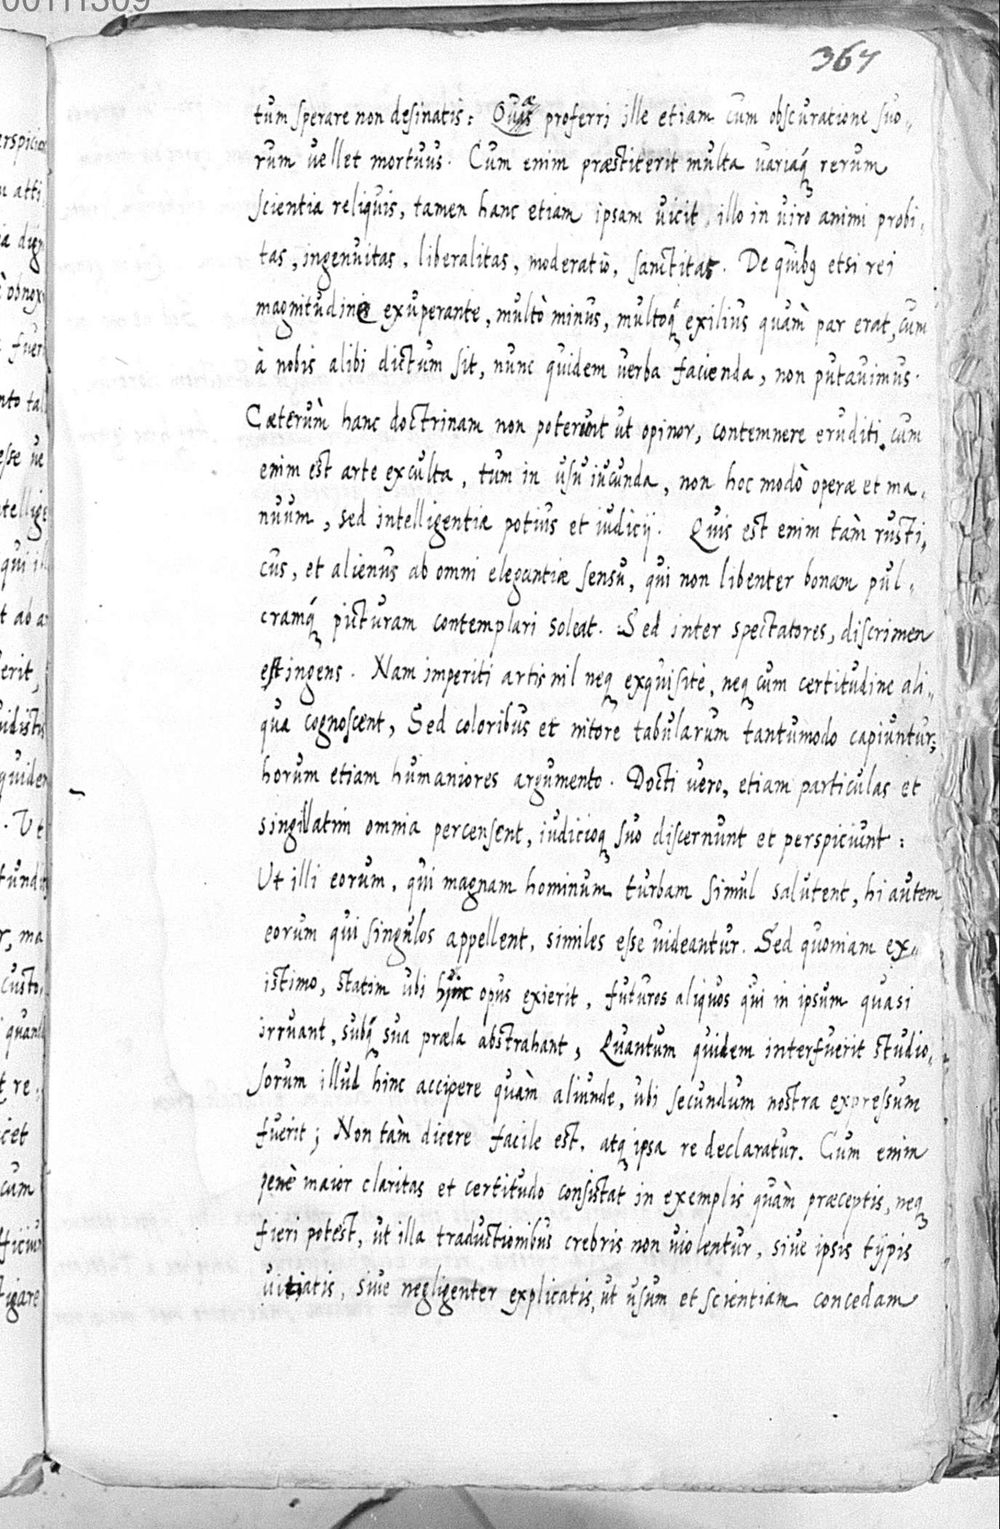 00111309
367
tum sperare non desinatis: Quas proferri ille etiam cum obscuratione suo,,
rum vellet mortuus. Cum enim præstiterit multa variaq́ rerum
scientia reliquis, tamen hanc etiam ipsam vicit, illo in viro animi probi,
tas, ingenuitas, liberalitas, moderatio, sanctitas. De quibꝰ etsi rei
magnitudine exuperante, multò minus, multoq́ exilius quàm par erat, cum
à nobis alibi dictum sit, nunc quidem verba facienda, non putavimus.
Cæterùm hanc doctrinam non poterunt ut opinor, contemnere eruditi, cum
enim est arte exculta, tum in usu iucunda, non hoc modò operæ et ma,
nuum, sed intelligentiæ potius et iudicij. Quis est enim tàm rusti,
cus, et alienus ab omni elegantiæ sensu, qui non libenter bonam pul,
cramq́ picturam contemplari soleat. Sed inter spectatores, discrimen
est ingens. Nam imperiti artis nil neq exquisitè, neq cum certitudine ali,,
qua cognoscent, Sed coloribus et nitore tabularum tantumodo capiuntur;
horum etiam humaniores argumento. Docti vero, etiam particulas et
singillatim omnia percensent, iudicioq suo discernunt et perspiciunt:
Ut illi eorum, qui magnam hominum turbam simul salutent, hi autem
eorum qui singulos appellent, similes esse videantur. Sed quoniam ex,,
istimo, statim ubi hinc opus exierit, futuros aliquos qui in ipsum quasi
irruant, subq́ sua præla abstrahant, Quantum quidem interfuerit studio,
sorum illud hinc accipere quàm aliunde, ubi secundum nostra expressum
fuerit; Non tàm dicere facile est, atq ipsa re declaratur. Cum enim
penè maior claritas et certitudo consistat in exemplis quàm præceptis, neq
fieri potest, ut illa traductionibus crebris non violentur, sive ipsis typis
vitiatis, sive negligenter explicatis, ut usum et scientiam concedam